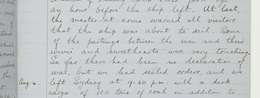 ay hour before the ship left. At last,
the master at arms warned all visitors
that the ship was about to sail. Some
of the partings between the men and their
wives and sweethearts was very touching.
So far there had been no declaration of
war, but we had sailed orders, and we
left Sydney at
cargo of tons of coal in addition to
Aug 4